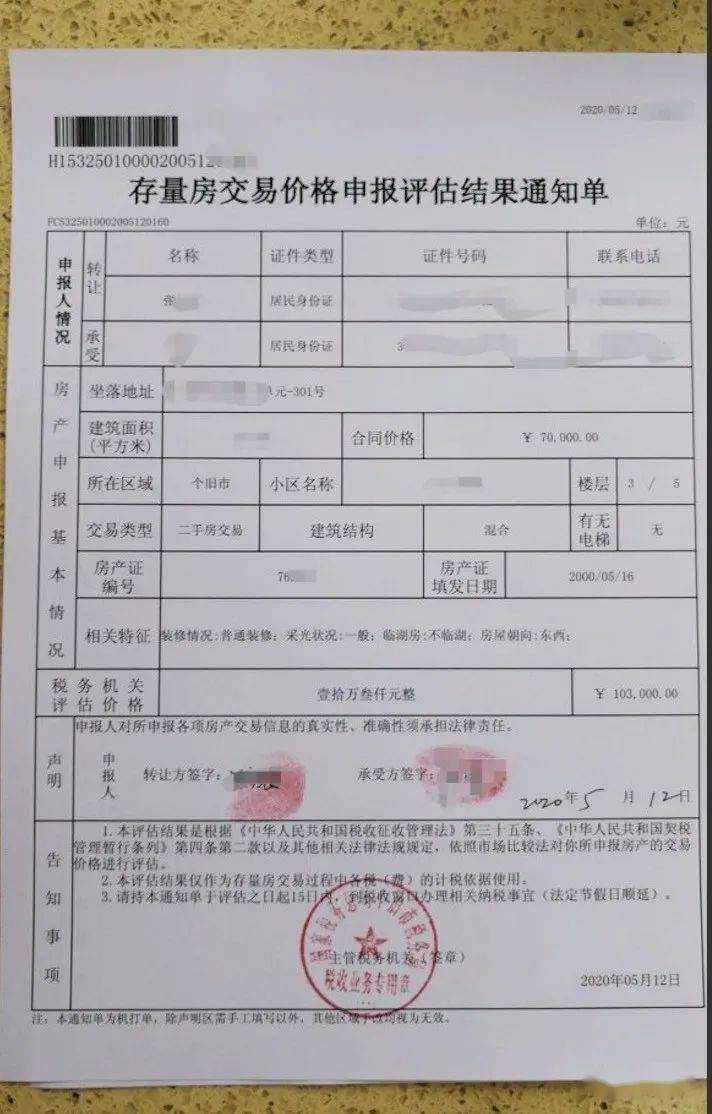 2020/05/12
H15325010000200512
存量房交易价格申报评估结果通知单
FC5325010002005120160
单位：元
申报人情况
转让
名称 证件类型 证件号码 联系电话
张 居民身份证
承受
居民身份证 3
房产申报基本情况
坐落地址 单元-301号
建筑面积(平方米) 合同价格 ¥ 70,000.00
所在区域 个旧市 小区名称 楼层 3 / 5
交易类型 二手房交易 建筑结构 混合 有无电梯 无
房产证编号 76 房产证填发日期 2000/05/16
相关特征 装修情况:普通装修; 采光状况:一般; 临湖房:不临湖; 房屋朝向:东西;
税务机关评估价格 壹拾万叁仟元整 ¥ 103,000.00
声明
申报人对所申报各项房产交易信息的真实性、准确性须承担法律责任。
申报人 转让方签字: 承受方签字:
2020年5月12日
告知事项
1.本评估结果是根据《中华人民共和国税收征收管理法》第三十五条、《中华人民共和国契税
管理暂行条列》第四条第二款以及其他相关法律法规规定，依照市场比较法对你所申报房产的交易
价格进行评估。
2.本评估结果仅作为存量房交易过程中各税（费）的计税依据使用。
3.请持本通知单于评估之日起15日内，到税收窗口办理相关纳税事宜（法定节假日顺延）。
主管税务机关（签章）
税收业务专用章
2020年05月12日
注：本通知单为机打单，除声明区需手工填写以外，其他区域手改均视为无效。